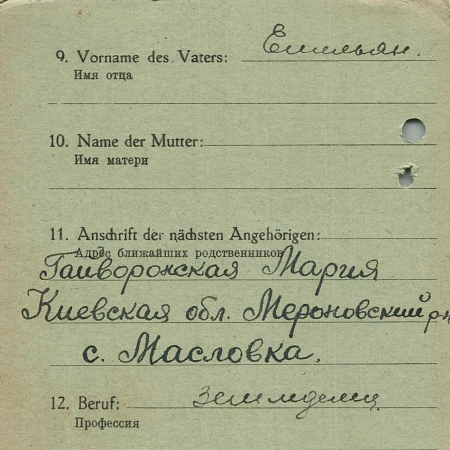 9. Vorname des Vaters: Емильян.
Имя отца
10. Name der Mutter:
Имя матери
11. Anschrift der nächsten Angehörigen:
Адрес ближайших родственников
Гайворонская Мария
Киевская обл. Мероновский р-н
с. Масловка.
12. Beruf: земледелец
Профессия